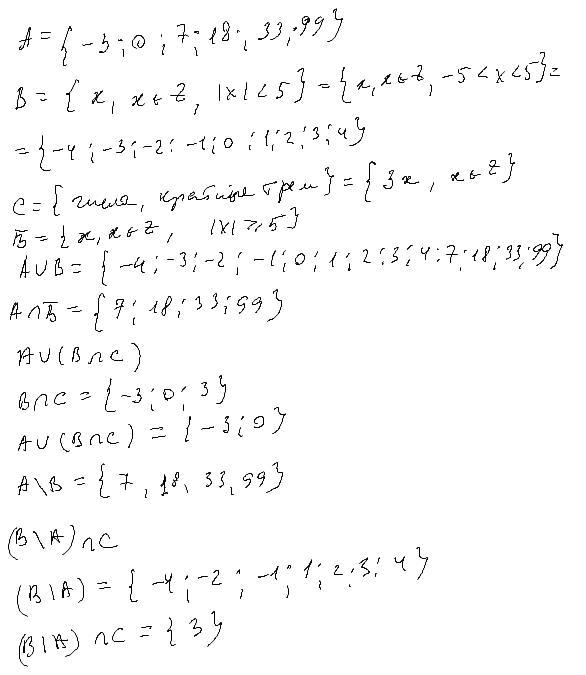 A = { -3 ; 0 ; 7 ; 18 ; 33 ; 99 }
B = { x, x ∈ Z, |x| < 5 } = { x, x ∈ Z, -5 < x < 5 } =
= { -4 ; -3 ; -2 ; -1 ; 0 ; 1 ; 2 ; 3 ; 4 }
C = { числа, кратные трем } = { 3x, x ∈ Z }
B̅ = { x, x ∈ Z, |x| ⩾ 5 }
A ∪ B = { -4 ; -3 ; -2 ; -1 ; 0 ; 1 ; 2 ; 3 ; 4 ; 7 ; 18 ; 33 ; 99 }
A ∩ B̅ = { 7 ; 18 ; 33 ; 99 }
A ∪ (B ∩ C)
B ∩ C = { -3 ; 0 ; 3 }
A ∪ (B ∩ C) = { -3 ; 0 }
A \ B = { 7, 18, 33, 99 }
(B \ A) ∩ C
(B \ A) = { -4 ; -2 ; -1 ; 1 ; 2 ; 3 ; 4 }
(B \ A) ∩ C = { 3 }